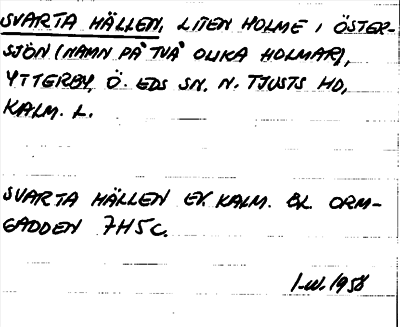 SVARTA HÄLLEN, LITEN HOLME I ÖSTER-
SJÖN (NAMN PÅ TVÅ OLIKA HOLMAR),
YTTERBY, Ö. EDS SN, N. TJUSTS HD,
KALM. L.
SVARTA HÄLLEN EK. KALM. BL. ORM-
GADDEN 7H5c.
1958